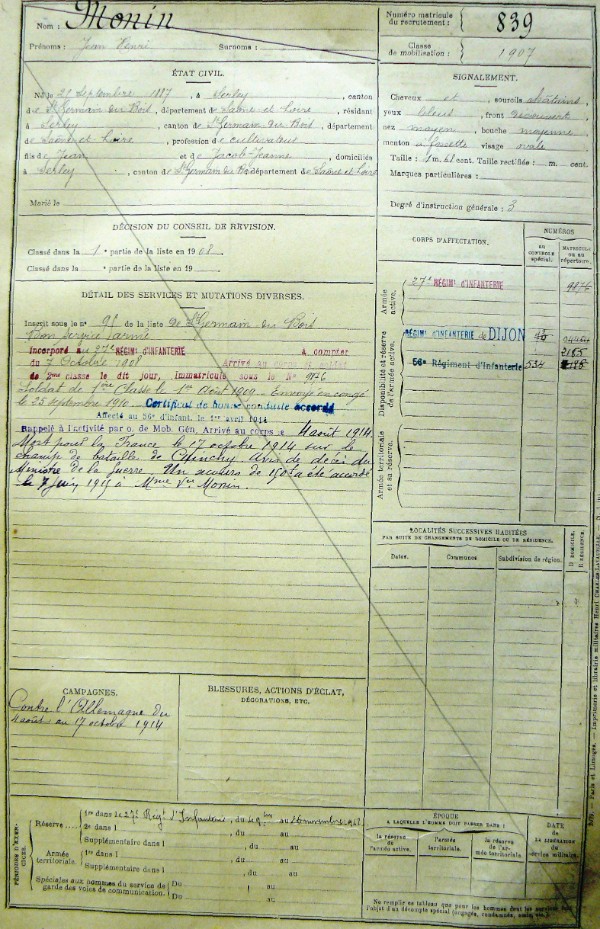 Nom : Monin
Prénoms : Jean Henri Surnoms :
Numéro matricule du recrutement : 839
Classe de mobilisation : 1907
ÉTAT CIVIL.
Né le 28 septembre 1887, à Serley, canton
de St Germain du Bois, département de Saône et Loire, résidant
à Serley, canton de St Germain du Bois, département
de Saône et Loire, profession de cultivateur
fils de Jean et de Jacob Jeanne, domiciliés
à Serley, canton de St Germain du Bois département de Saône et Loire
Marié le
SIGNALEMENT.
Cheveux et sourcils châtains
yeux bleus, front découvert
nez moyen, bouche moyenne
menton à fossette visage ovale
Taille : 1 m. 61 cent. Taille rectifiée : m. cent.
Marques particulières :
Degré d'instruction générale : 3
DÉCISION DU CONSEIL DE REVISION.
Classé dans la 1e partie de la liste en 1908
Classé dans la e partie de la liste en 19
DÉTAIL DES SERVICES ET MUTATIONS DIVERSES.
Inscrit sous le n° 98 de la liste de St Germain du Bois
Bon service armé
Incorporé au 27e RÉGIMENT D'INFANTERIE à compter
du Octobre 1908 Arrivé au corps
de 2me classe le dit jour, Immatriculé sous le No 9876
Soldat de 1ère Classe le 1er Août 1909. Envoyé en congé
le 25 septembre 1910. Certificat de bonne conduite accordé
Affecté au 56e d'Infant. le 1er avril 1914
Rappelé à l'activité par o. de Mob. Gén. Arrivé au corps le 4 août 1914.
Mort pour la France le 17 octobre 1914 sur le
champ de bataille de avis de décès du
Ministre de la Guerre. Un secours de 150f a été accordé
le 7 juin 1915 à Mme Vve Monin.
CORPS D'AFFECTATION.
NUMÉROS
DU CONTRÔLE spécial.
MATRICULE OU AU répertoire.
Armée active.
27e RÉGIMt D'INFANTERIE 9876
Disponibilité et réserve de l'armée active.
RÉGIMt D'INFANTERIE de DIJON
2185
56e Régiment d'Infanterie 534
Armée territoriale et sa réserve.
LOCALITÉS SUCCESSIVES HABITÉES
PAR SUITE DE CHANGEMENTS DE DOMICILE OU DE RÉSIDENCE.
Dates. Communes Subdivision de région. D. domicile, R. résidence.
CAMPAGNES.
Contre l'Allemagne du
4 août au 17 octobre 1914
BLESSURES, ACTIONS D'ÉCLAT,
DÉCORATIONS, ETC.
PÉRIODES D'EXERCICES.
Réserve 1re dans le 27e Régt d'Infanterie, du au
2e dans l , du au
Supplémentaire dans l , du au
Armée territoriale. 1re dans l , du au
Supplémentaire dans l , du au
Spéciales aux hommes du service de garde des voies de communication. Du au
Du au
ÉPOQUE
A LAQUELLE L'HOMME DOIT PASSER DANS :
la réserve de l'armée active. l'armée territoriale. la réserve de l'armée territoriale.
DATE DE LA LIBÉRATION DU service militaire.
Ne remplir ce tableau que pour les hommes dont les services font
l'objet d'un décompte spécial (engagés, condamnés, omis, etc.)